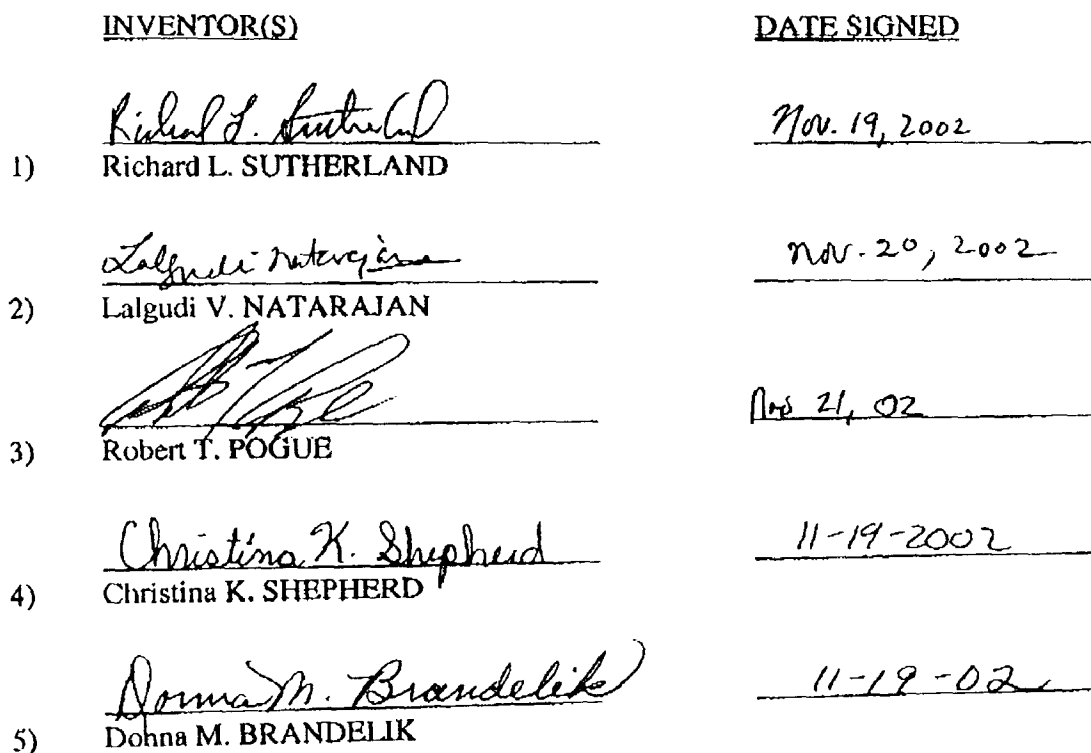 INVENTOR(S) DATE SIGNED
Richard L. Sutherland Nov. 19, 2002
1) Richard L. SUTHERLAND
Lalgudi Natarajan Nov. 20, 2002
2) Lalgudi V. NATARAJAN
21, 02
3) Robert T. POGUE
Christina K. Shepherd 11-19-2002
4) Christina K. SHEPHERD
Donna M. Brandelik 11-19-02
5) Donna M. BRANDELIK